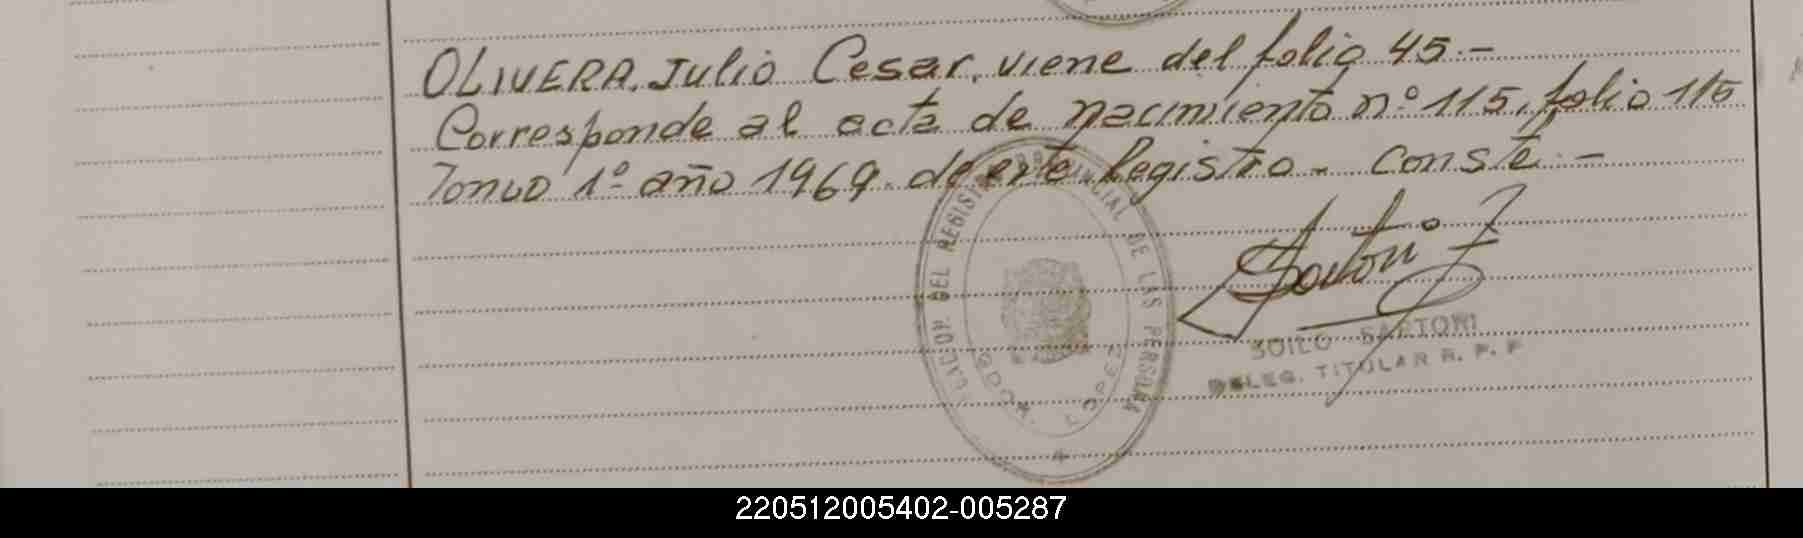 OLIVERA, Julio Cesar, viene del folio 45.-
Corresponde al acta de nacimiento nº 115, folio 115
Tomo 1º año 1969. de este Registro - Conste.-
DEL REGISTRO PROVINCIAL DE LAS PERSONAS
SOILO SARTORI
DELEG. TITULAR R. P. P
220512005402-005287